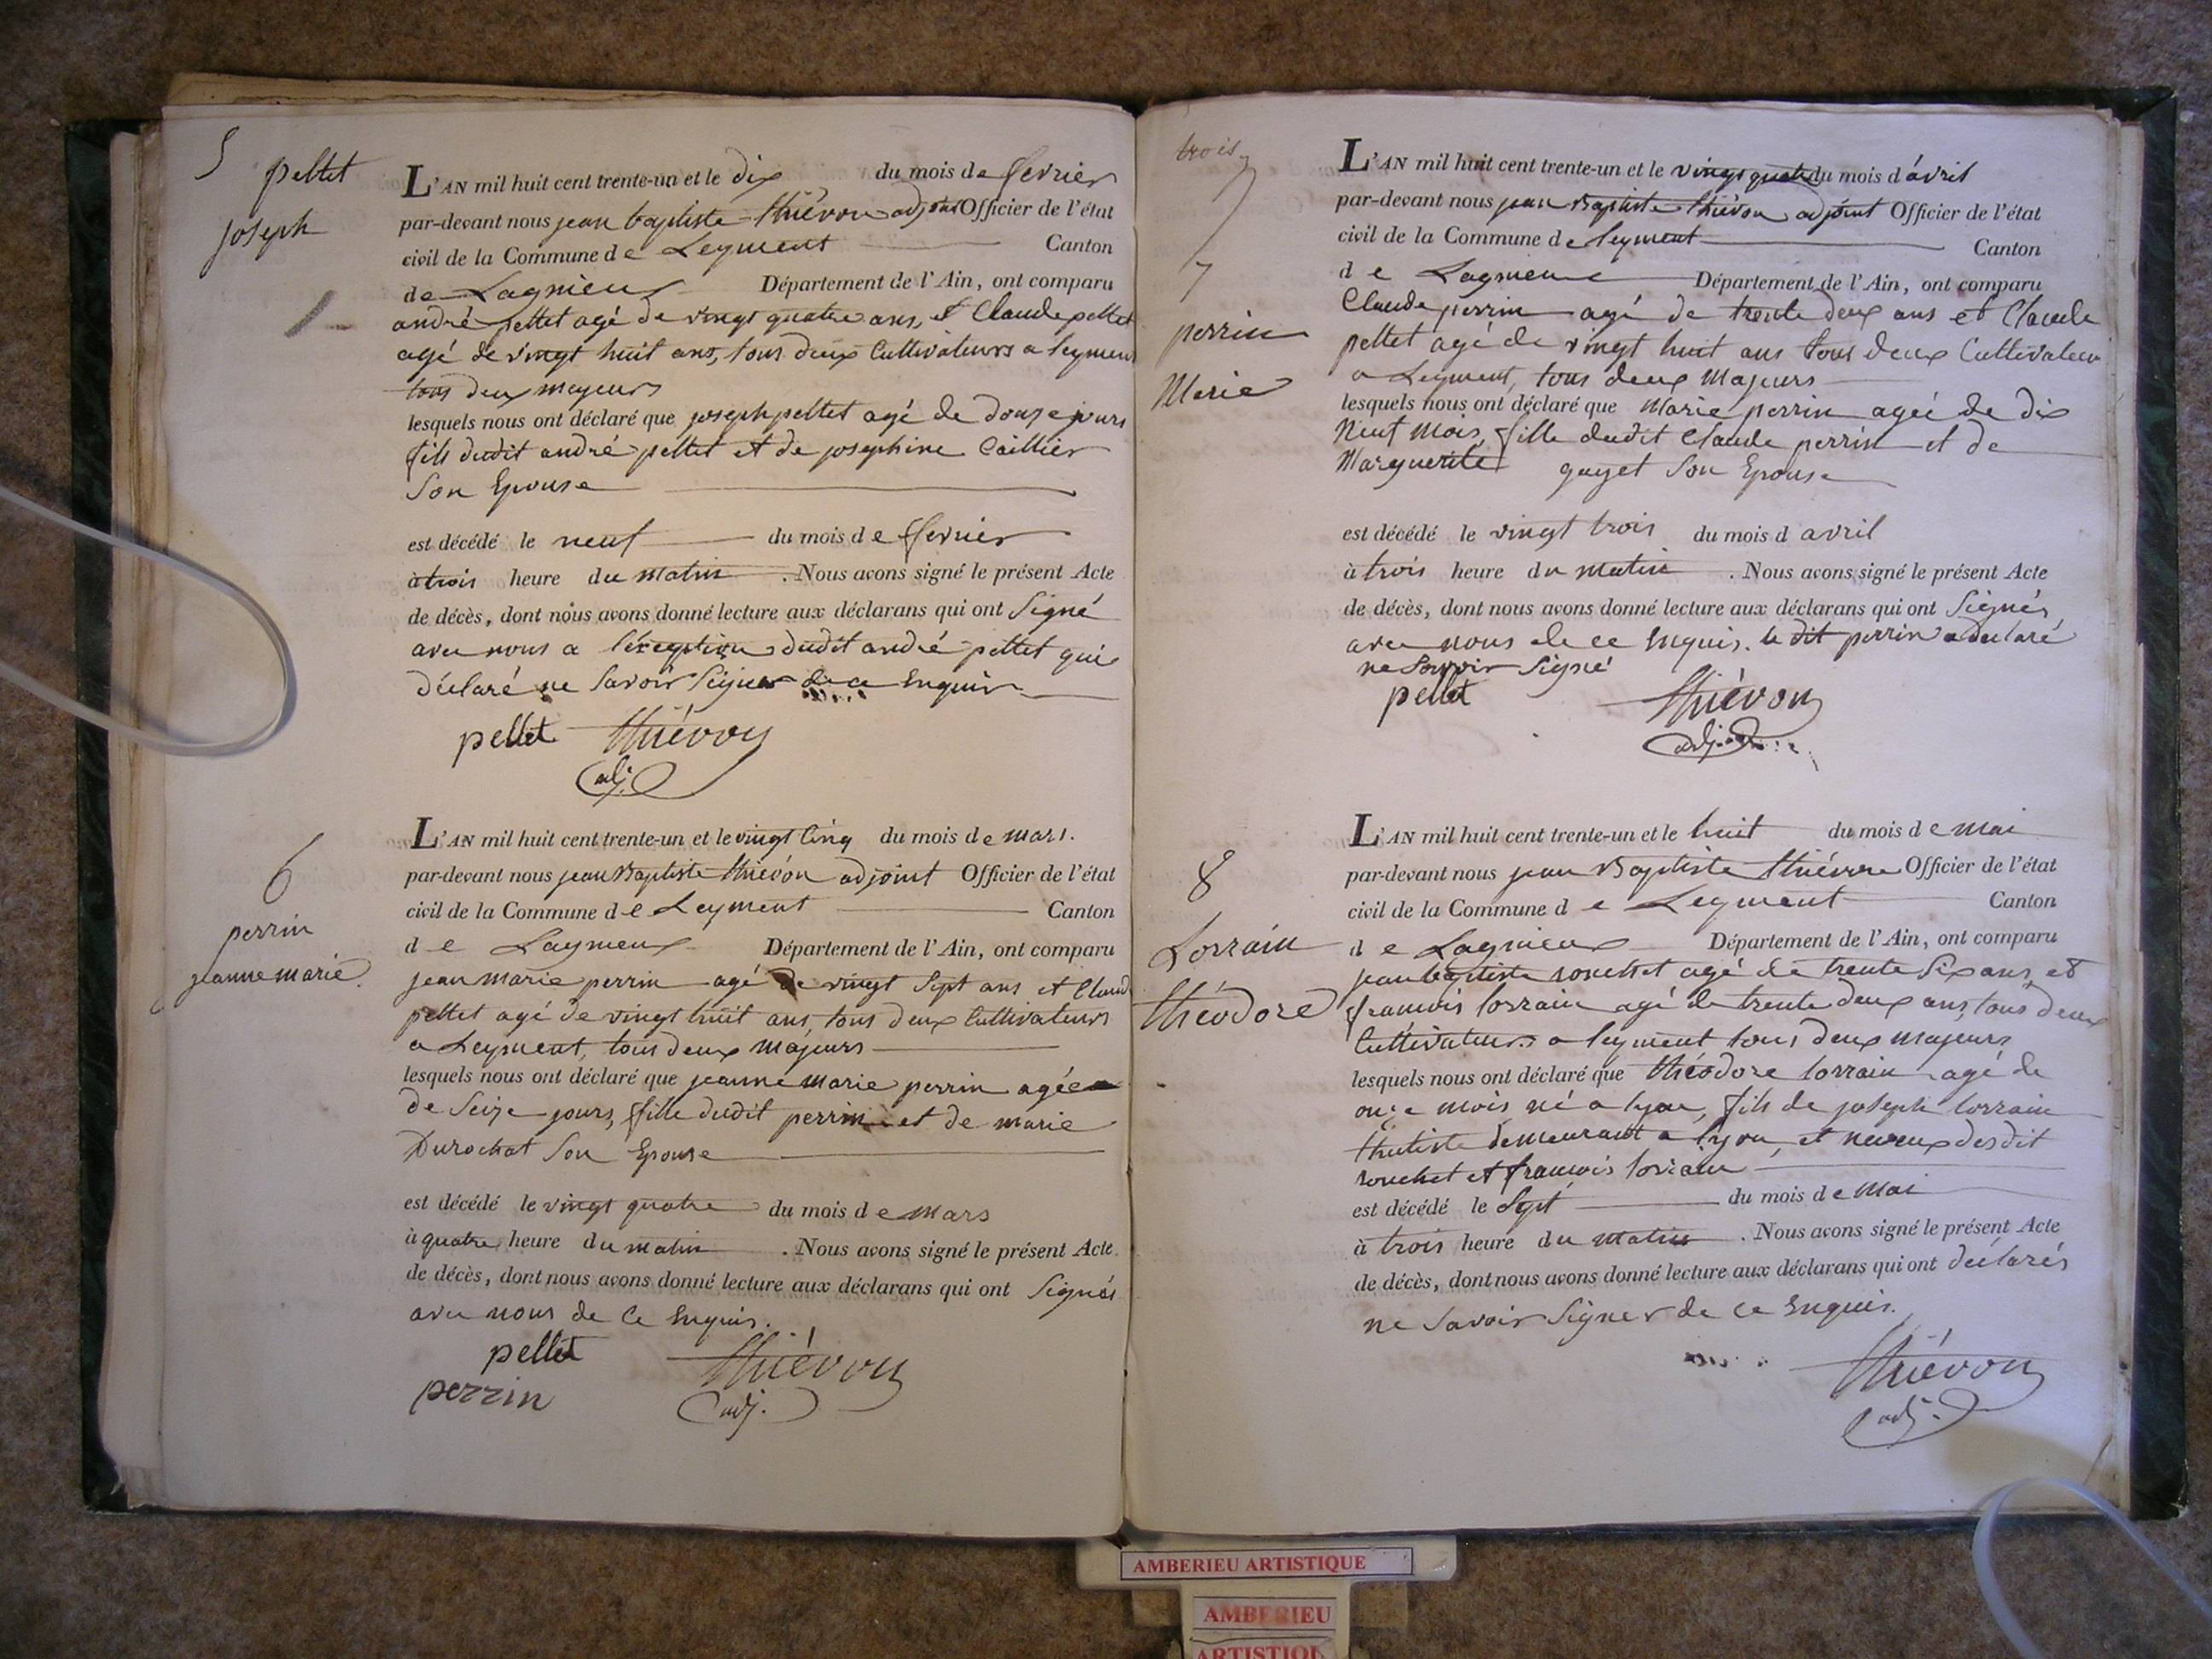 5 pellet
joseph
L'AN mil huit cent trente-un et le dix du mois de fevrier
par-devant nous jean baptiste thiévon adjoint Officier de l'état
civil de la Commune de Leyment Canton
de Lagnieux Département de l'Ain, ont comparu
andré pellet agé de vingt quatre ans, et Claude pellet
agé de vingt huit ans, tous deux Cultivateurs a leyment
tous deux mageurs
lesquels nous ont déclaré que joseph pellet agé de douze jours
fils dudit andré pellet et de josephine Caillier
Son Epouse
est décédé le neuf du mois de fevrier
à trois heure du matin . Nous avons signé le présent Acte
de décès, dont nous avons donné lecture aux déclarans qui ont Signé
avec nous a l'exeption dudit andré pellet qui
déclaré ne Savoir Signer de ce Enquis
pellet thiévon
adj.
6
perrin
jeanne marie
L'AN mil huit cent trente-un et le vingt Cinq du mois de mars.
par-devant nous jean Baptiste thiévon adjoint Officier de l'état
civil de la Commune de Leyment Canton
de Lagnieux Département de l'Ain, ont comparu
jean marie perrin agé de vingt Sept ans et Claude
pellet agé de vingt huit ans, tous deux Cultivateurs
a Leyment, tous deux majeurs
lesquels nous ont déclaré que jeanne marie perrin agée
de Seize jours, fille dudit perrin et de marie
Durochat Son Epouse
est décédé le vingt quatre du mois de mars
à quatre heure du matin . Nous avons signé le présent Acte
de décès, dont nous avons donné lecture aux déclarans qui ont Signés
avec nous de Ce Enquis.
pellet thiévon
perrin adj.
trois
7
7
perrin
Marie
L'AN mil huit cent trente-un et le vingt quatre du mois d'avril
par-devant nous jean Baptiste thiévon adjoint Officier de l'état
civil de la Commune de leyment Canton
de Lagnieux Département de l'Ain, ont comparu
Claude perrin agé de trente deux ans et Claude
pellet agé de vingt huit ans tous deux Cultivateur
a Leyment, tous deux Majeurs
lesquels nous ont déclaré que Marie perrin ageé de dix
Neuf mois, fille dudit Claude perrin et de
Marguerite guyet Son Epouse
est décédé le vingt trois du mois d avril
à trois heure du matin . Nous avons signé le présent Acte
de décès, dont nous avons donné lecture aux déclarans qui ont Signés
avec nous de ce Enquis. le dit perrin a declaré
ne Savoir Signé
pellet thiévon
adj.
8
Lorrain
théodore
L'AN mil huit cent trente-un et le huit du mois de mai
par-devant nous jean Baptiste thiévon Officier de l'état
civil de la Commune de Leyment Canton
de Lagnieux Département de l'Ain, ont comparu
jean baptiste rouchet agé de trente Six ans, et
francois lorrain agé de trente deux ans, tous deux
Cultivateurs a leyment tous deux mageurs
lesquels nous ont déclaré que théodore lorrain agé de
onze mois né a lyon, fils de joseph lorrain
demeurant a lyon, et neveux desdit
rouchet et francois lorrain
est décédé le Sept du mois de Mai
à trois heure du matin . Nous avons signé le présent Acte
de décès, dont nous avons donné lecture aux déclarans qui ont déclarés
ne Savoir Signer de ce Enquis.
thiévon
adj.
AMBERIEU ARTISTIQUE
AMBERIEU
ARTISTIQU